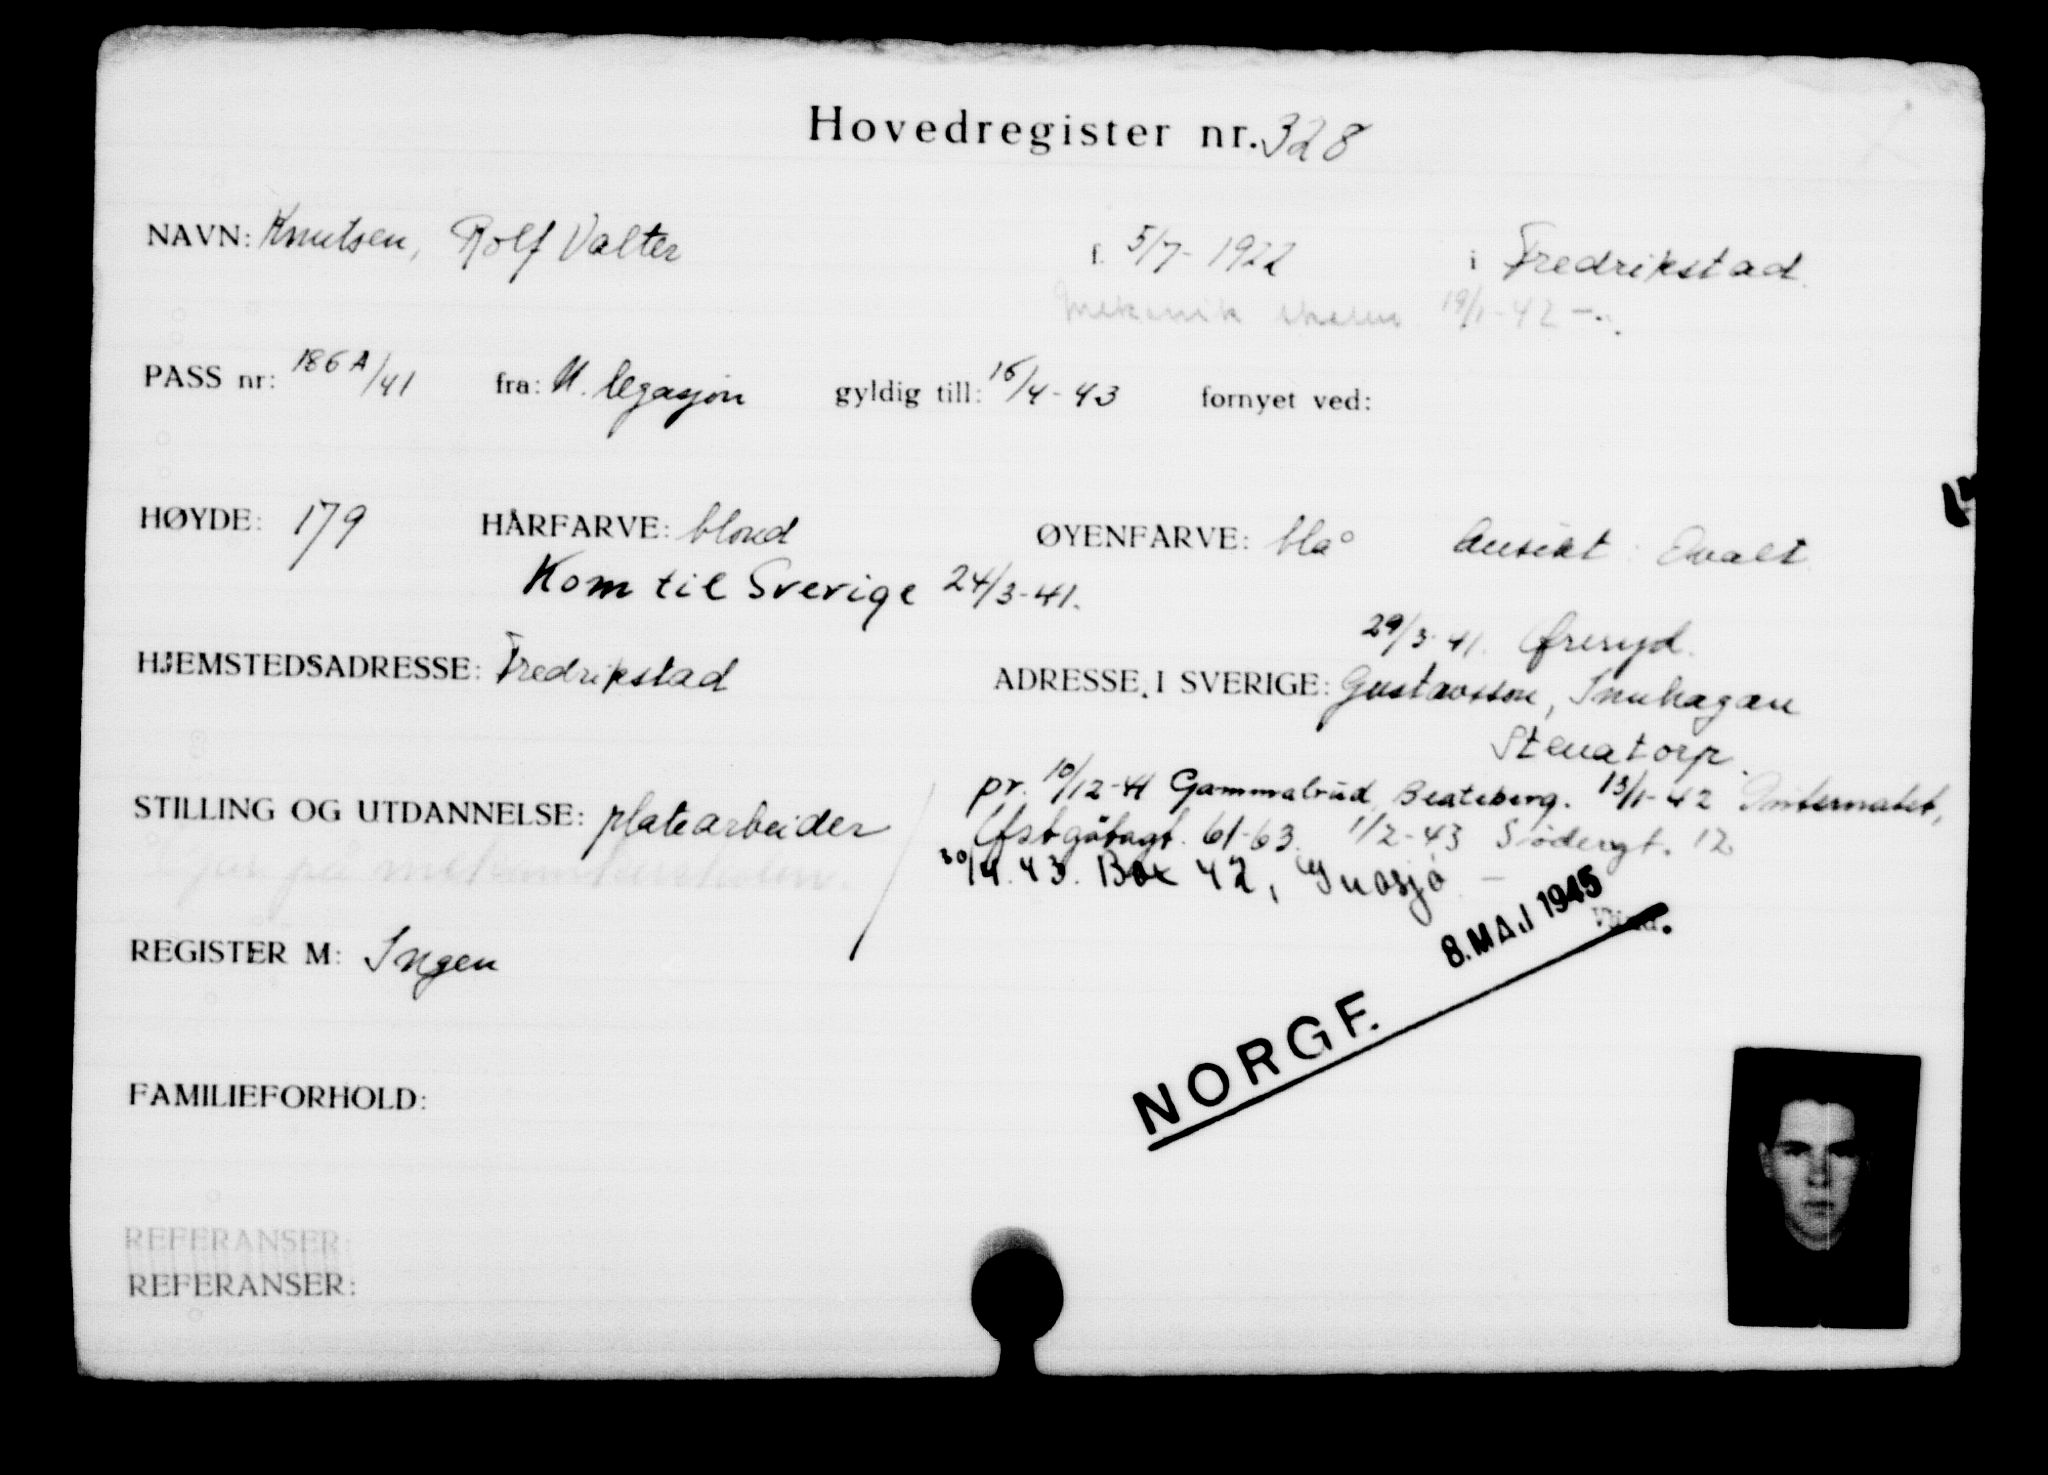 Hovedregister nr. 328
NAVN: Knutsen, Rolf Valter f. 5/7-1922 i Fredrikstad.
19/1-42 -
PASS nr: 186A/41 fra: N. legasjon gyldig till: 16/4-43 fornyet ved:
HØYDE: 179 HÅRFARVE: blond ØYENFARVE: blå Ansikt: Ovalt
Kom til Sverige 24/3-41.
29/3-41. Øreryd.
HJEMSTEDSADRESSE: Fredrikstad ADRESSE I SVERIGE: Gustavsson,
Stenatorp.
pr. 10/12-41 Gammalrud, Beateberg. 13/1-42 Internatet,
STILLING OG UTDANNELSE: platearbeider
Østgötagt. 61-63. 1/2-43 Södergt. 12
på
30/4.43. Box 42, Gnosjö -
8. MAJ 1945
REGISTER M: Ingen
NORGE.
FAMILIEFORHOLD:
REFERANSER:
REFERANSER: